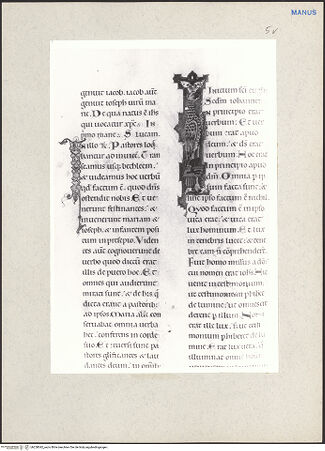 MANUS
5v
genuit iacob. iacob aut̄
genuit ioseph uirū ma
rie. De qua natus ē ih̄s
qui uocatur xp̄c.
Pastores loq̄
bantur ad inuicē. Trans
eamus usq; bethleem. &
uideamus hoc uerbū
qd̄ factum ē. quod dn̄s
ostendit nobis. Et ue
nerunt festinantes. &
inuenerunt mariam &
ioseph. & infantem posi
tum in presepio. Viden
tes aut̄ cognouerunt de
uerbo quod dictū erat
illis de puero hoc. Et
omnes qui audierunt
mirati sunt. & de his q̄
dicta erant a pastorib;
ad ipsos. Maria aut̄ con
seruabat omnia uerba
hec. conferens in corde
suo. Et reuersi sunt pa
stores glificantes & lau
dantes deum. in omīb;
Initium sc̄i eu
Scd̄m iohannem
In principio erat
uerbum. Et uer
bum erat apud
deum. & ds̄ erat
uerbum. Hoc erat
in principio apud
dm̄. Omnia p ip
sum facta sunt. &
sine ipso factum ē nichil.
Quod factum ē in ipso
uita erat. & uita erat
lux hominum. Et lux
in tenebris lucet. & tene
bre eam n̄ cōprehenderunt.
Fuit homo missus a dō.
cui nomen erat iohs. Hic
uenit in testimonium.
ut testimonium phiberet
de lumine. ut omnes cre
derent p illum. Non
erat ille lux. sed ut testi
monium phiberet de
lumine. Erat lux uera. q̄
illuminat omnē homi